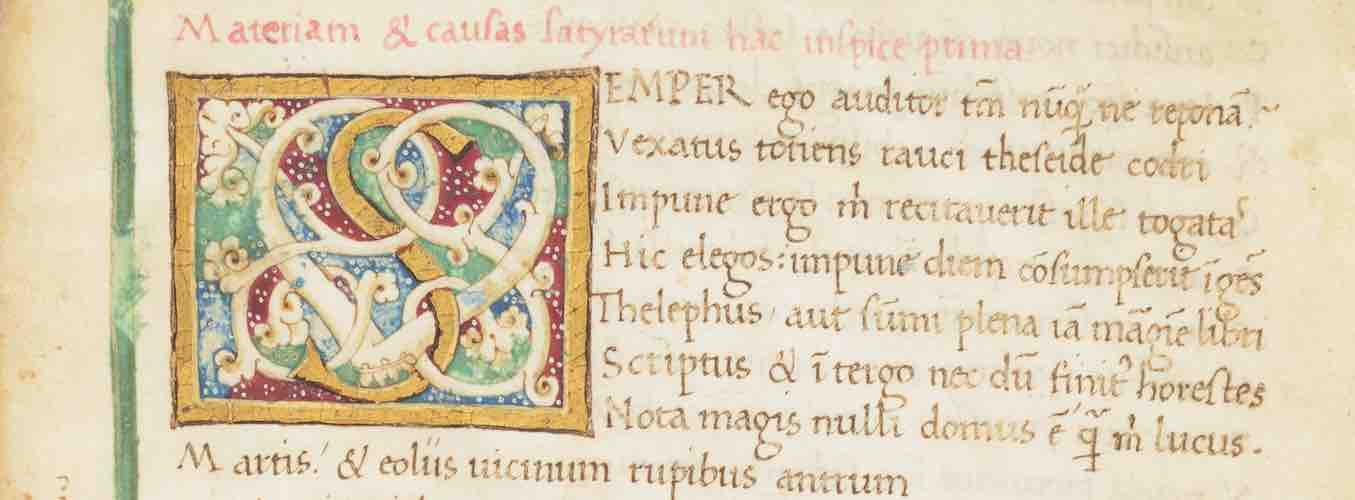 Materiam & causas satyrarum hac inspice prima
SEMPER ego auditor tm̄ nūq̄ ne reponā
Vexatus totiens rauci theseide codri
Impune ergo m̄ recitauerit ille togatas
Hic elegos: impune diem cōsumpserit īgēs
Thelephus, aut sūmi plena iā māgīe libri
Scriptus & ī tergo nec dū finitꝰ horestes
Nota magis nulli domus ē q̄ m̄ lucus.
Martis: & eoliis uicinum rupibus antrum